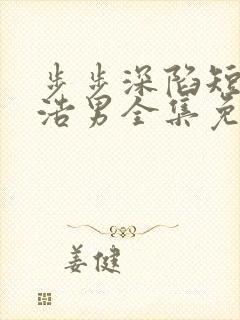 步步深陷短
浩男全集免
姜健